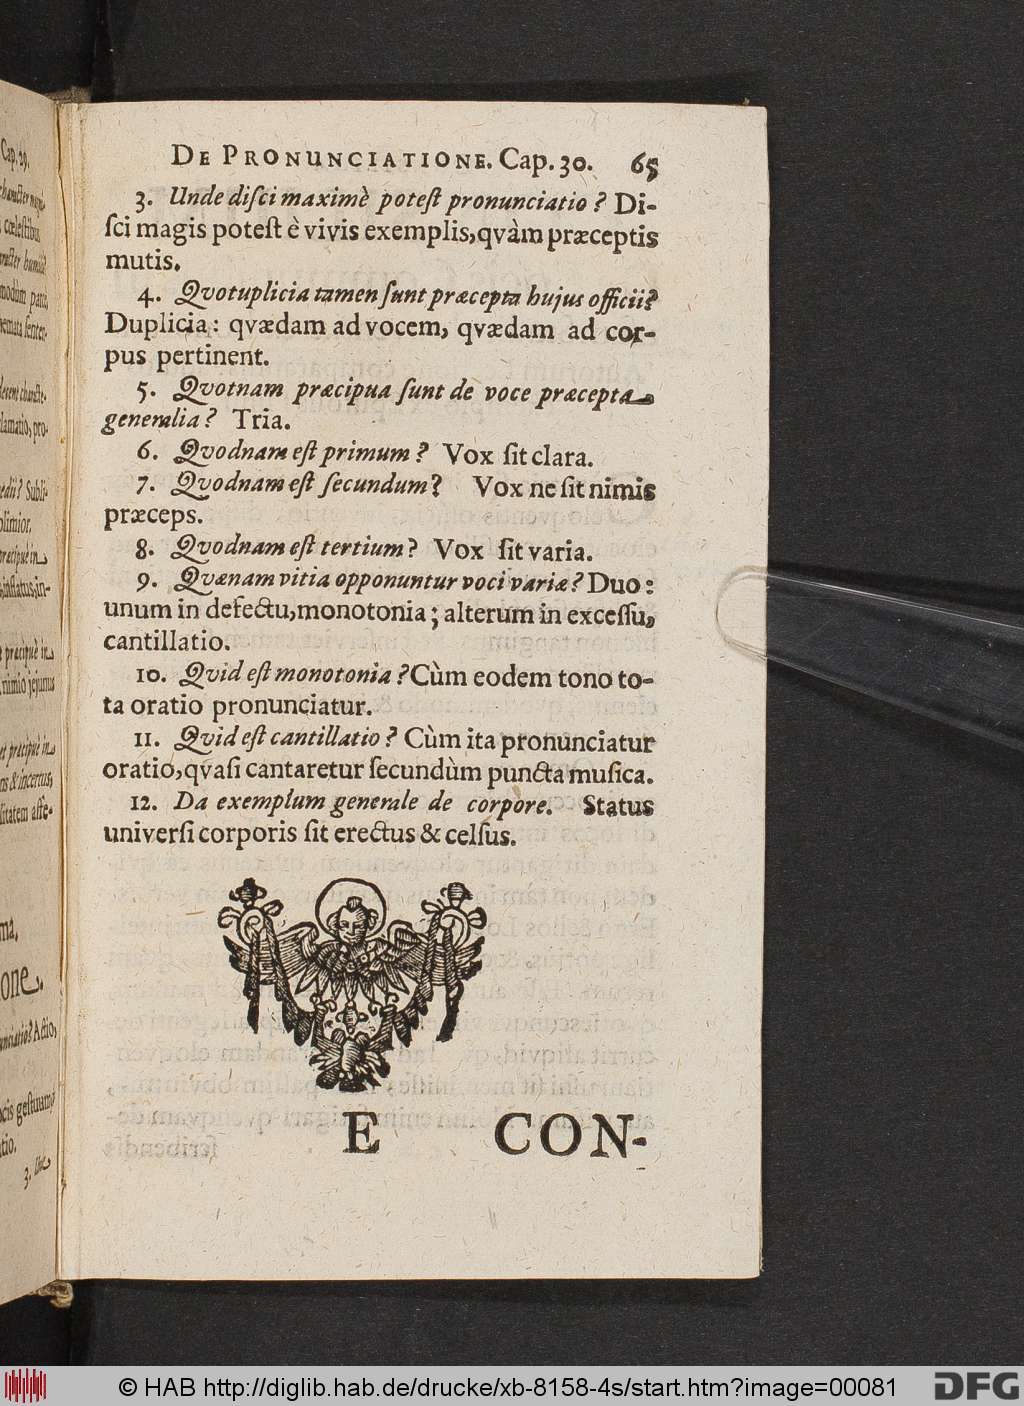 DE PRONUNCIATIONE. Cap. 30. 65
3. Unde diſci maximè poteſt pronunciatio? Di-
ſci magis poteſt è vivis exemplis, qvàm præceptis
mutis.
4. Qvotuplicia tamen ſunt præcepta hujus officii?
Duplicia: qvædam ad vocem, qvædam ad cor-
pus pertinent.
5. Qvotnam præcipua ſunt de voce præcepta
generalia? Tria.
6. Qvodnam eſt primum? Vox ſit clara.
7. Qvodnam eſt ſecundum? Vox ne ſit nimis
præceps.
8. Qvodnam eſt tertium? Vox ſit varia.
9. Qvænam vitia opponuntur voci variæ? Duo:
unum in defectu, monotonia; alterum in exceſſu,
cantillatio.
10. Qvid eſt monotonia? Cùm eodem tono to-
ta oratio pronunciatur.
11. Qvid eſt cantillatio? Cùm ita pronunciatur
oratio, qvaſi cantaretur ſecundùm puncta muſica.
12. Da exemplum generale de corpore. Status
univerſi corporis ſit erectus & celſus.
E CON-
© HAB http://diglib.hab.de/drucke/xb-8158-4s/start.htm?image=00081
DFG